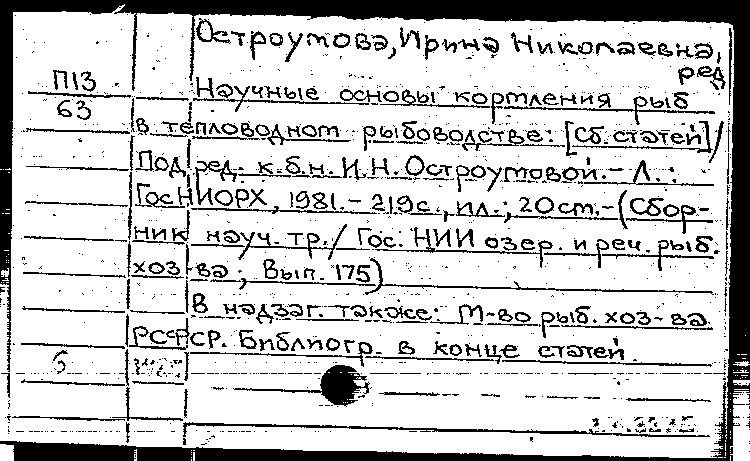 Остроумова, Ирина Николаевна,
ред.
П13
63
Научные основы кормления рыб
в тепловодном рыбоводстве: [Сб. статей]/
Под ред. к.б.н. И.Н. Остроумовой. - Л.:
ГосНИОРХ, 1981. - 219с., ил.; 20см. - (Сбор-
ник науч. тр./ Гос. НИИ озер. и реч. рыб.
хоз-ва; Вып. 175)
В надзаг. также: М-во рыб. хоз-ва
РСФСР. Библиогр. в конце статей.